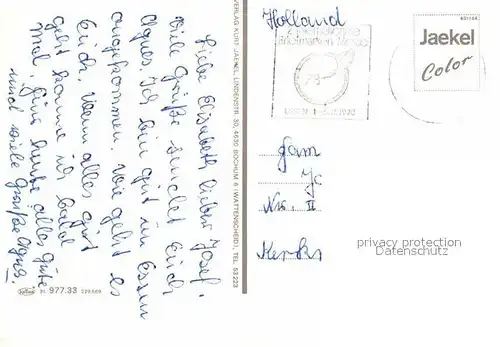 Liebe Elisabeth lieber Josef.
Viele Grüße sendet Euch
Agnes. Ich bin gut in Essen
angekommen. Wie geht es
Euch. Wenn alles gut
geht komme ich bald
mal. Für heute alles Gute
und viele Grüße Agnes.
VERLAG KURT JAEKEL, LINDENSTR. 30, 4630 BOCHUM 6 (WATTENSCHEID), TEL. 53 223
977.33
Holland
Jaekel
Color
Fam
Kerks
privacy protection
Datenschutz